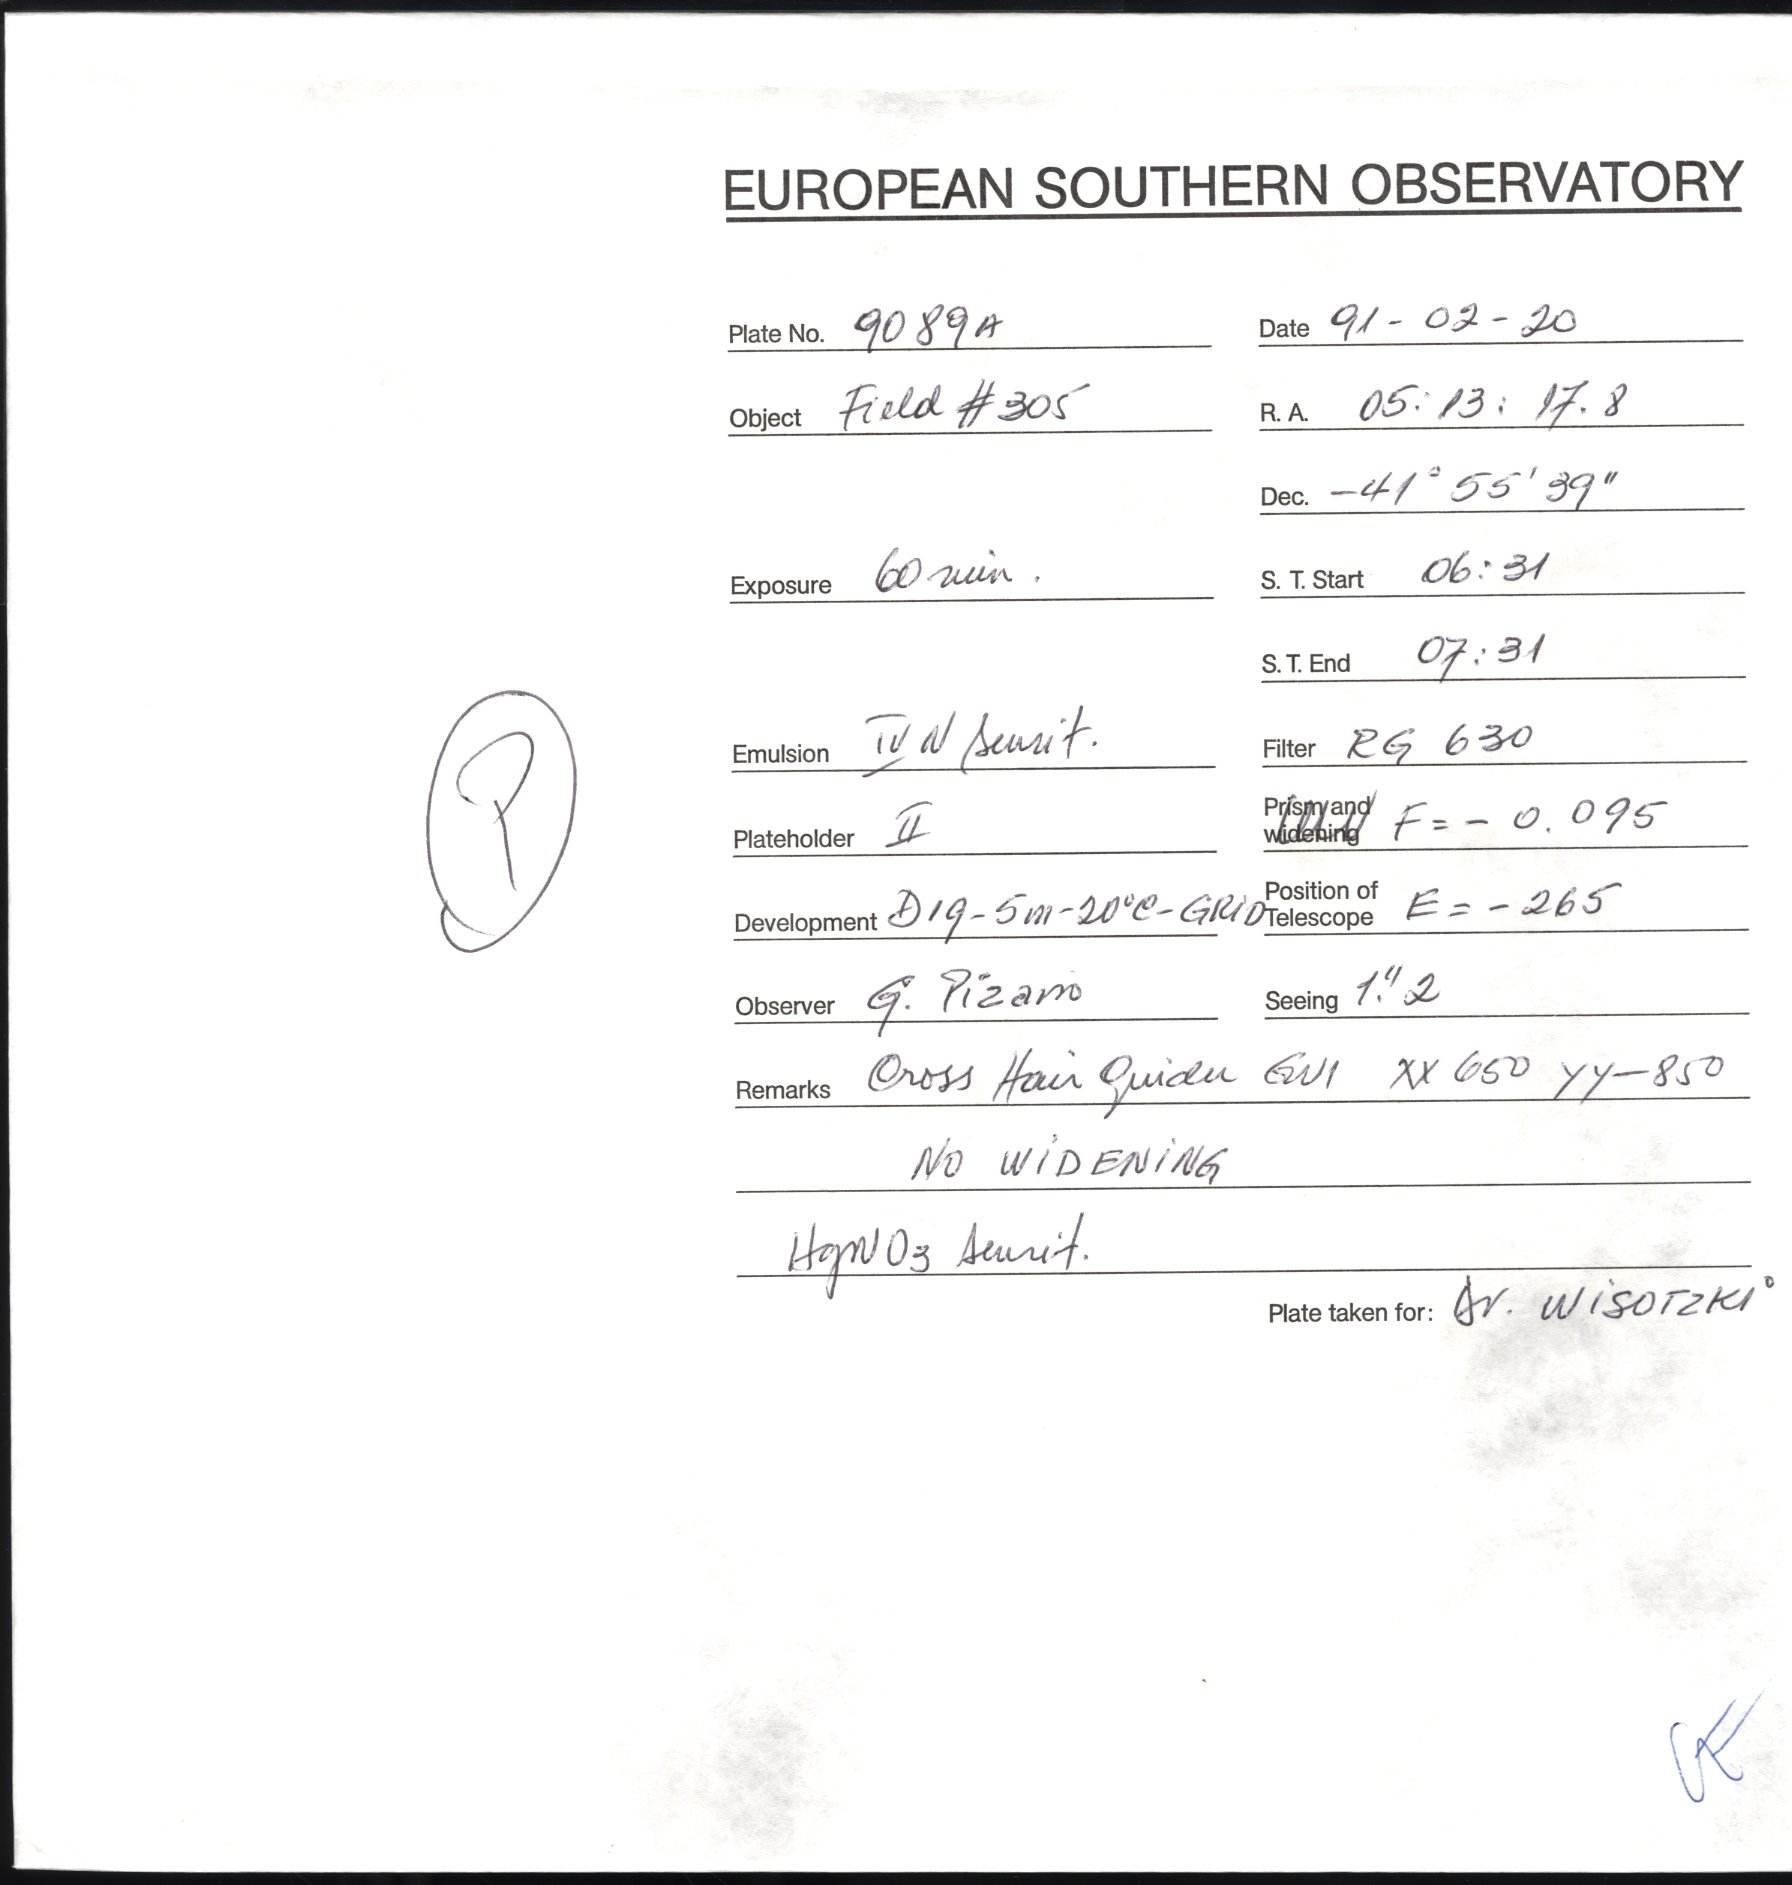 EUROPEAN SOUTHERN OBSERVATORY
Plate No. 9089A Date 91-02-20
Object Field #305 R. A. 05: 13: 17.8
Dec. -41° 55' 39"
Exposure 60 min. S. T. Start 06:31
S. T. End 07:31
Emulsion IV N sensit. Filter RG 630
Plateholder II Prism and widening F = - 0.095
Development D19-5m-20°C-GRID Position of Telescope E = - 265
Observer G. Pizarro Seeing 1."2
Remarks Cross Hair Guider XX 650 YY-850
NO WIDENING
HgNO3 sensit.
Plate taken for: Dr. WISOTZKI